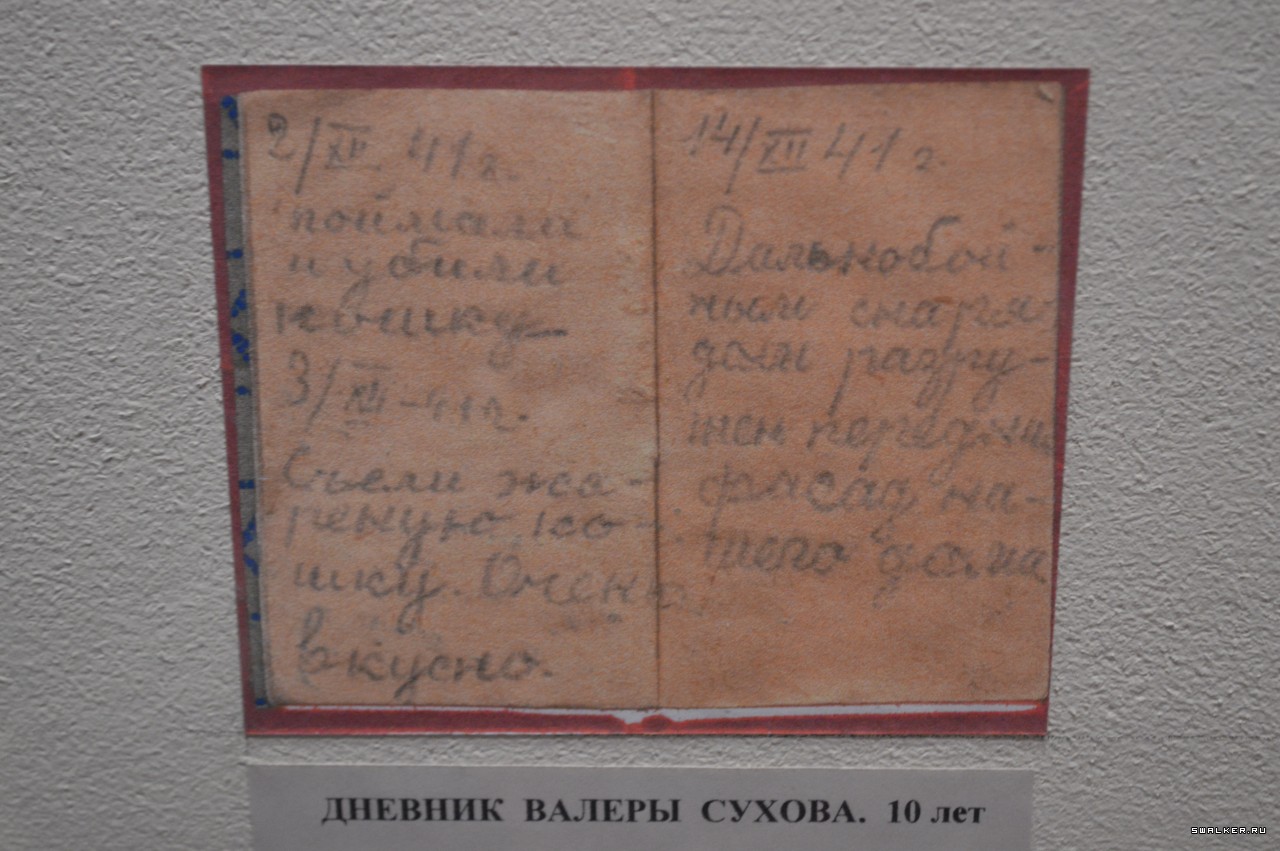 2/XII 41 г.
поймали
и убили
кошку
3/XII-41г.
Съели жа-
реную ко-
шку. Очень
вкусно.
14/XII 41 г.
Дальнобой-
ным снаря-
дом разру-
шен передний
фасад на-
шего дома
ДНЕВНИК ВАЛЕРЫ СУХОВА. 10 лет
SWALKER.RU